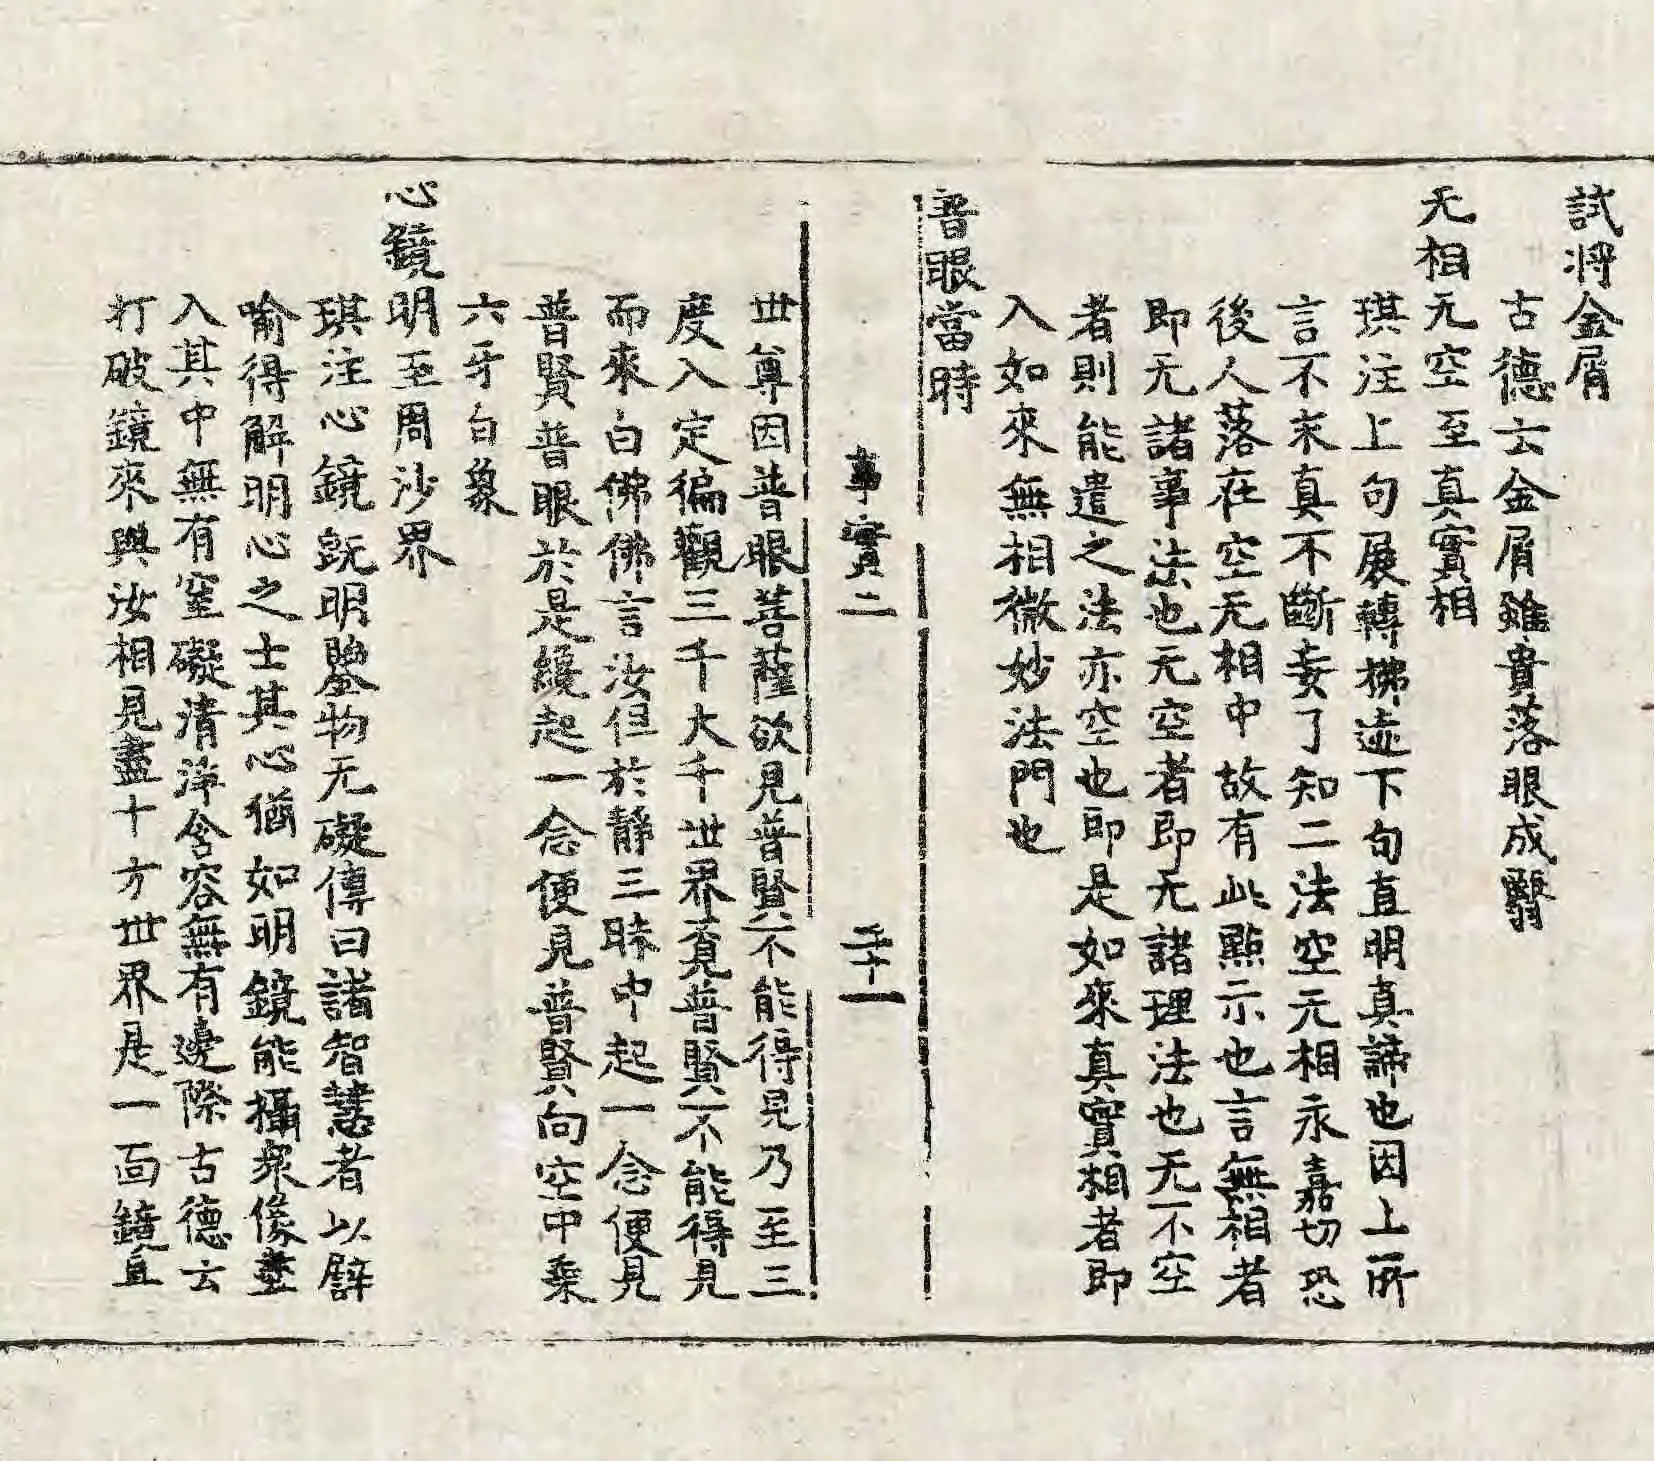 試將金屑
古德云金屑雖貴落眼成翳
无相无空至真實相
琪注上句展轉拂迹下句直明真諦也因上所
言不求真不斷妄了知二法空无相永嘉切恐
後人落在空无相中故有此點示也言無相者
即无諸事法也无空者即无諸理法也无不空
者則能遣之法亦空也即是如來真實相者即
入如來無相微妙法門也
普眼當時
事實二
二十一
世尊因普眼菩薩欲見普賢不能得見乃至三
度入定徧觀三千大千世界覓普賢不能得見
而來白佛佛言汝但於靜三昧中起一念便見
普賢普眼於是纔起一念便見普賢向空中乘
六牙白象
心鏡明至周沙界
琪注心鏡旣明鑒物无礙傳曰諸智慧者以譬
喻得解明心之士其心猶如明鏡能攝衆像盡
入其中無有窒礙清淨含容無有邊際古德云
打破鏡來與汝相見盡十方世界是一面鏡且